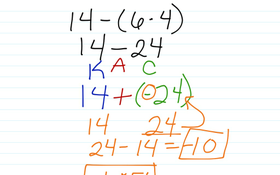 14 - (6 · 4)
14 - 24
K A C
14 + (-24)
14 24
24 - 14 = -10